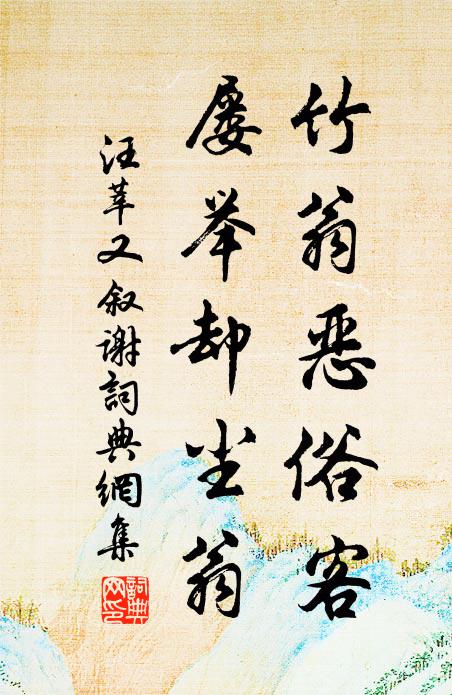 竹翁恶俗客
屡举却尘翁
汪莘又叙谢詞典網集
詞典网印